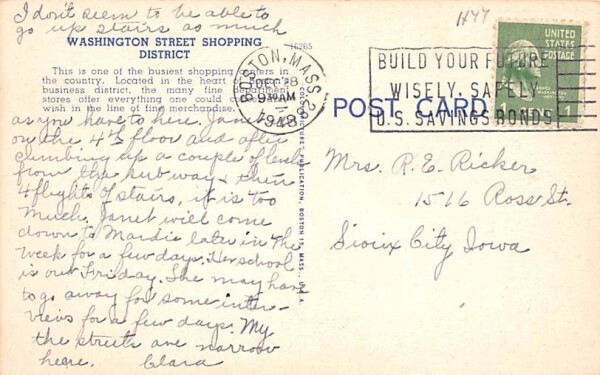 I don't seem to be able to
go up stairs as much
WASHINGTON STREET SHOPPING
DISTRICT
16265
This is one of the busiest shopping centers in
the country. Located in the heart of Boston's
business district, the many fine department
stores offer everything one could
wish in the line of fine merchandise.
as you have to here. Janet is
on the 4th floor and after
climbing up a couple of levels
from the subway & then
4 flights of stairs, it is too
much. Janet will come
down to Mardie later in the
week for a few days. Her school
is out Friday. She may have
to go away for some inter-
views for a few days. My
the streets are narrow
here. Clara
BOSTON, MASS.
DEC 28
9 30 AM
1948
BUILD YOUR FUTURE
WISELY, SAFELY
U.S. SAVINGS BONDS
UNITED
STATES
POSTAGE
1
1
POST CARD
Mrs. R. E. Ricker
1516 Ross St.
Sioux City Iowa